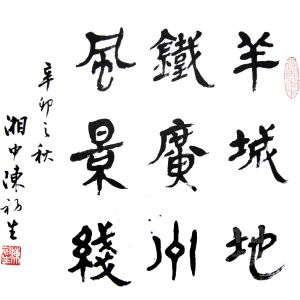 羊城地
鐵廣州
風景綫
辛卯之秋
湘中陳初生